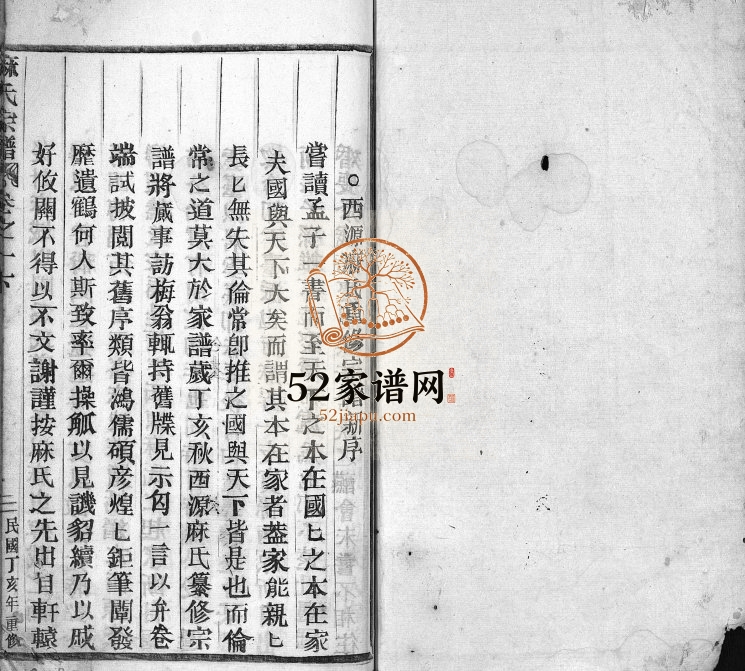 西源麻氏重修宗譜新序
嘗讀孟子書而至天下之本在國匕之本在家
夫國與天下大矣而謂其本在家者葢家能親匕
長匕無失其倫常卽推之國與天下皆是也而倫
常之道莫大於家譜歲丁亥秋西源麻氏纂修宗
譜將蕆事訪梅翁輒持舊牒見示匃一言以弁卷
端試披閱其舊序類皆鴻儒碩彥煌匕鉅筆闡發
靡遺鶴何人斯致率爾操觚以見譏貂續乃以戚
好攸關不得以不文謝謹按麻氏之先出自軒轅
麻氏宗譜
卷之十六
二
民國丁亥年重修
52家谱网
52jiapu.com